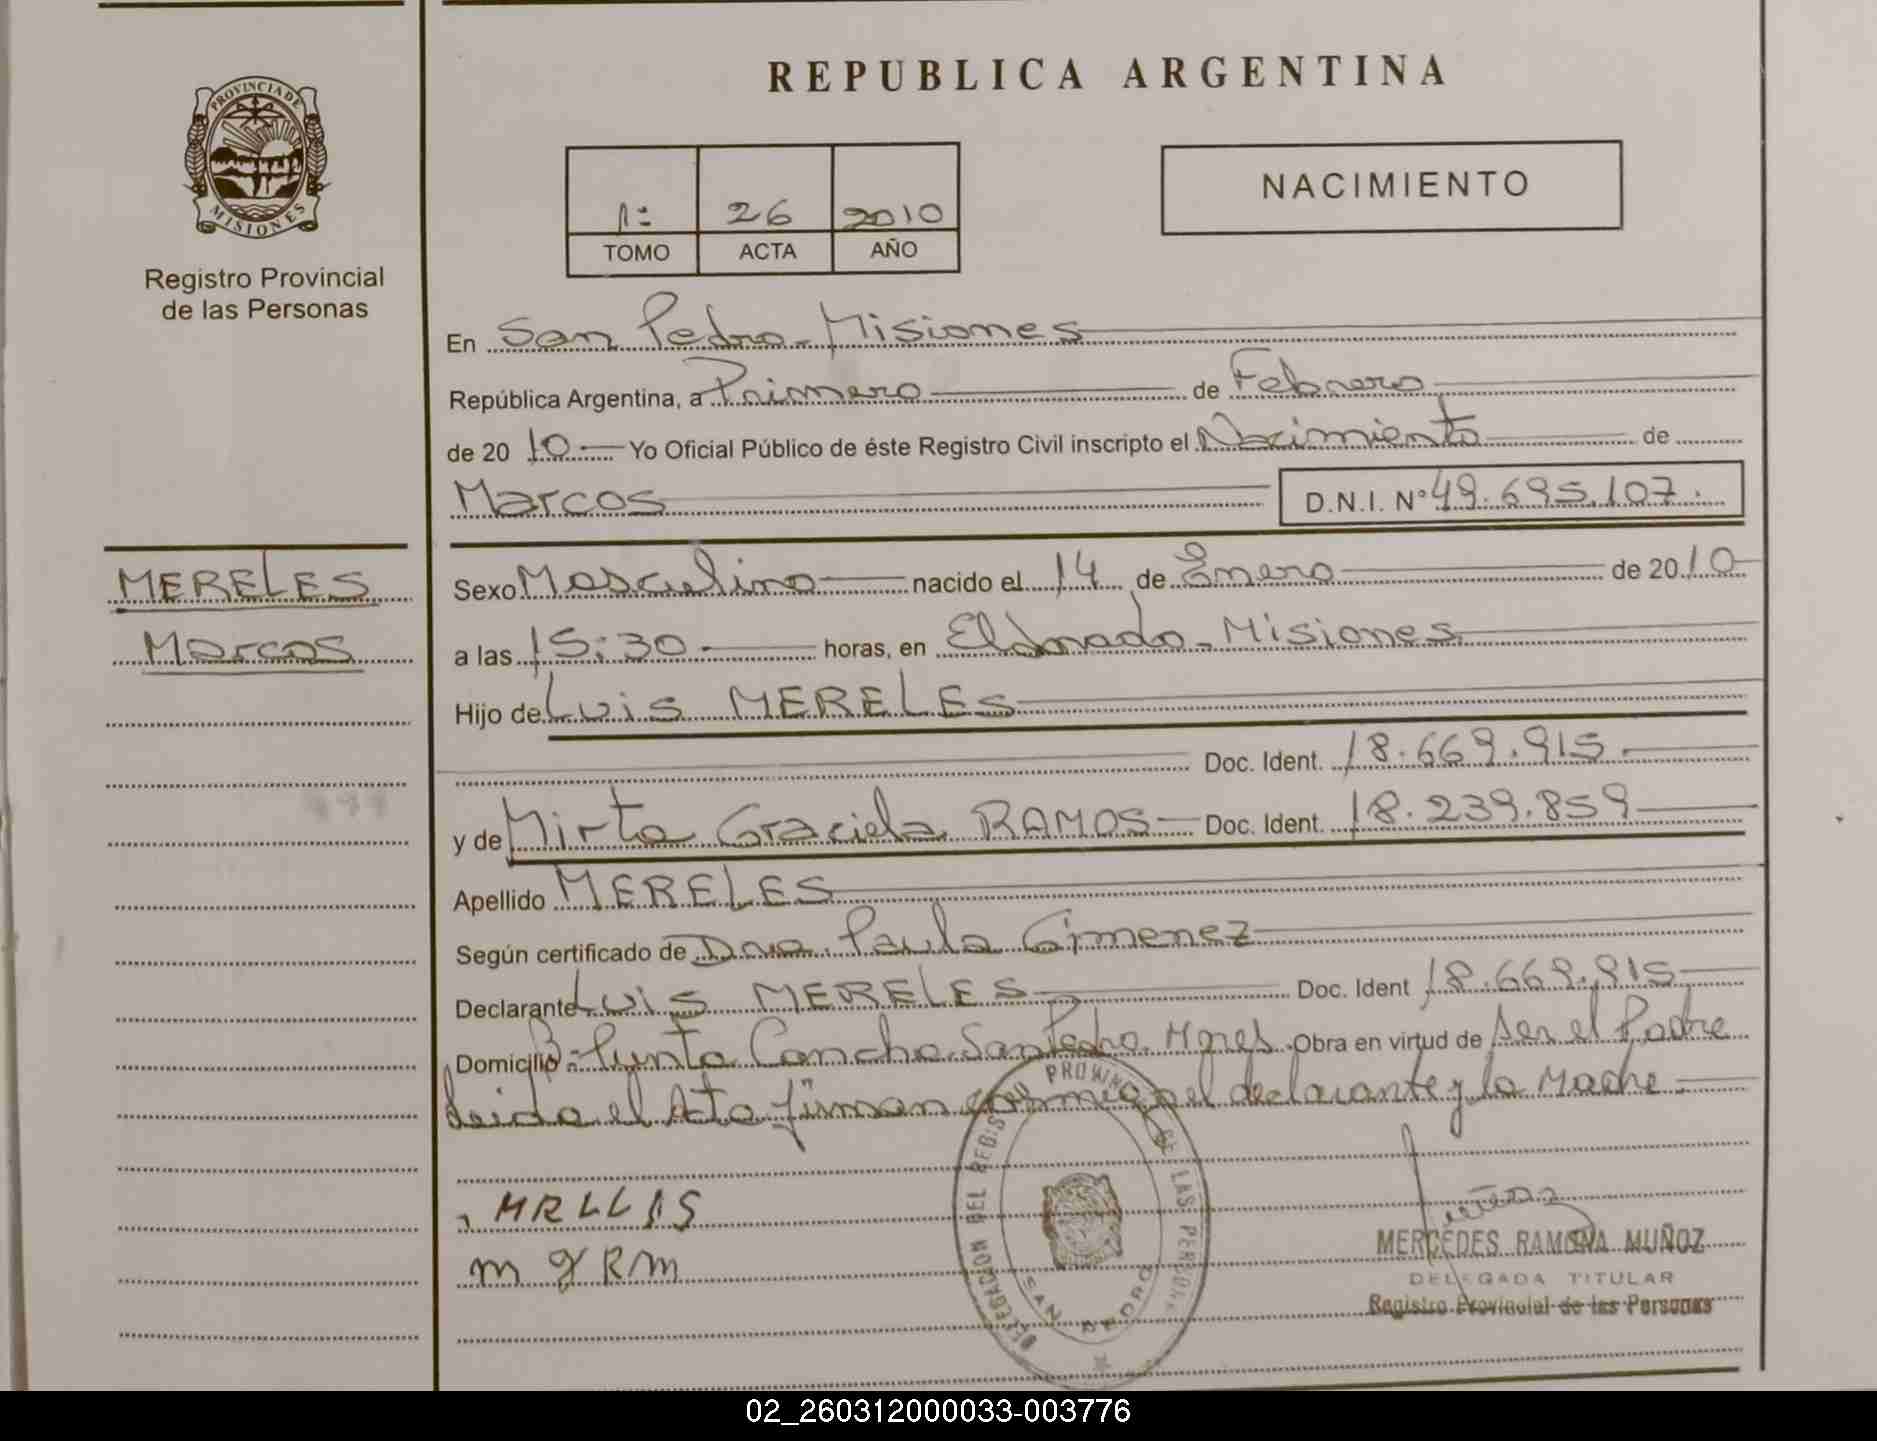 REPUBLICA ARGENTINA
PROVINCIA DE
MISIONES
Registro Provincial
de las Personas
1º 26 2010
TOMO ACTA AÑO
NACIMIENTO
En San Pedro - Misiones
República Argentina, a Primero de Febrero
de 20 10 Yo Oficial Público de éste Registro Civil inscripto el Nacimiento de
Marcos D.N.I. Nº 49.695.107.
MERELES
Marcos
Sexo Masculino nacido el 14 de Enero de 20 10
a las 15:30 horas, en Eldorado - Misiones
Hijo de Luis MERELES
Doc. Ident. 18.669.915
y de Mirta Graciela RAMOS Doc. Ident. 18.239.859
Apellido MERELES
Según certificado de Dra. Paula Gimenez
Declarante Luis MERELES Doc. Ident 18.669.915
Domicilio Bº Punta Cancha San Pedro Mnes. Obra en virtud de Ser el Padre
leida el Acta firman conmigo el declarante y la Madre
MRLLIS
m g R m
DELEGACION DEL REGISTRO PROVINCIAL DE LAS PERSONAS
SAN PEDRO
MERCEDES RAMONA MUÑOZ
DELEGADA TITULAR
Registro Provincial de las Personas
02_260312000033-003776